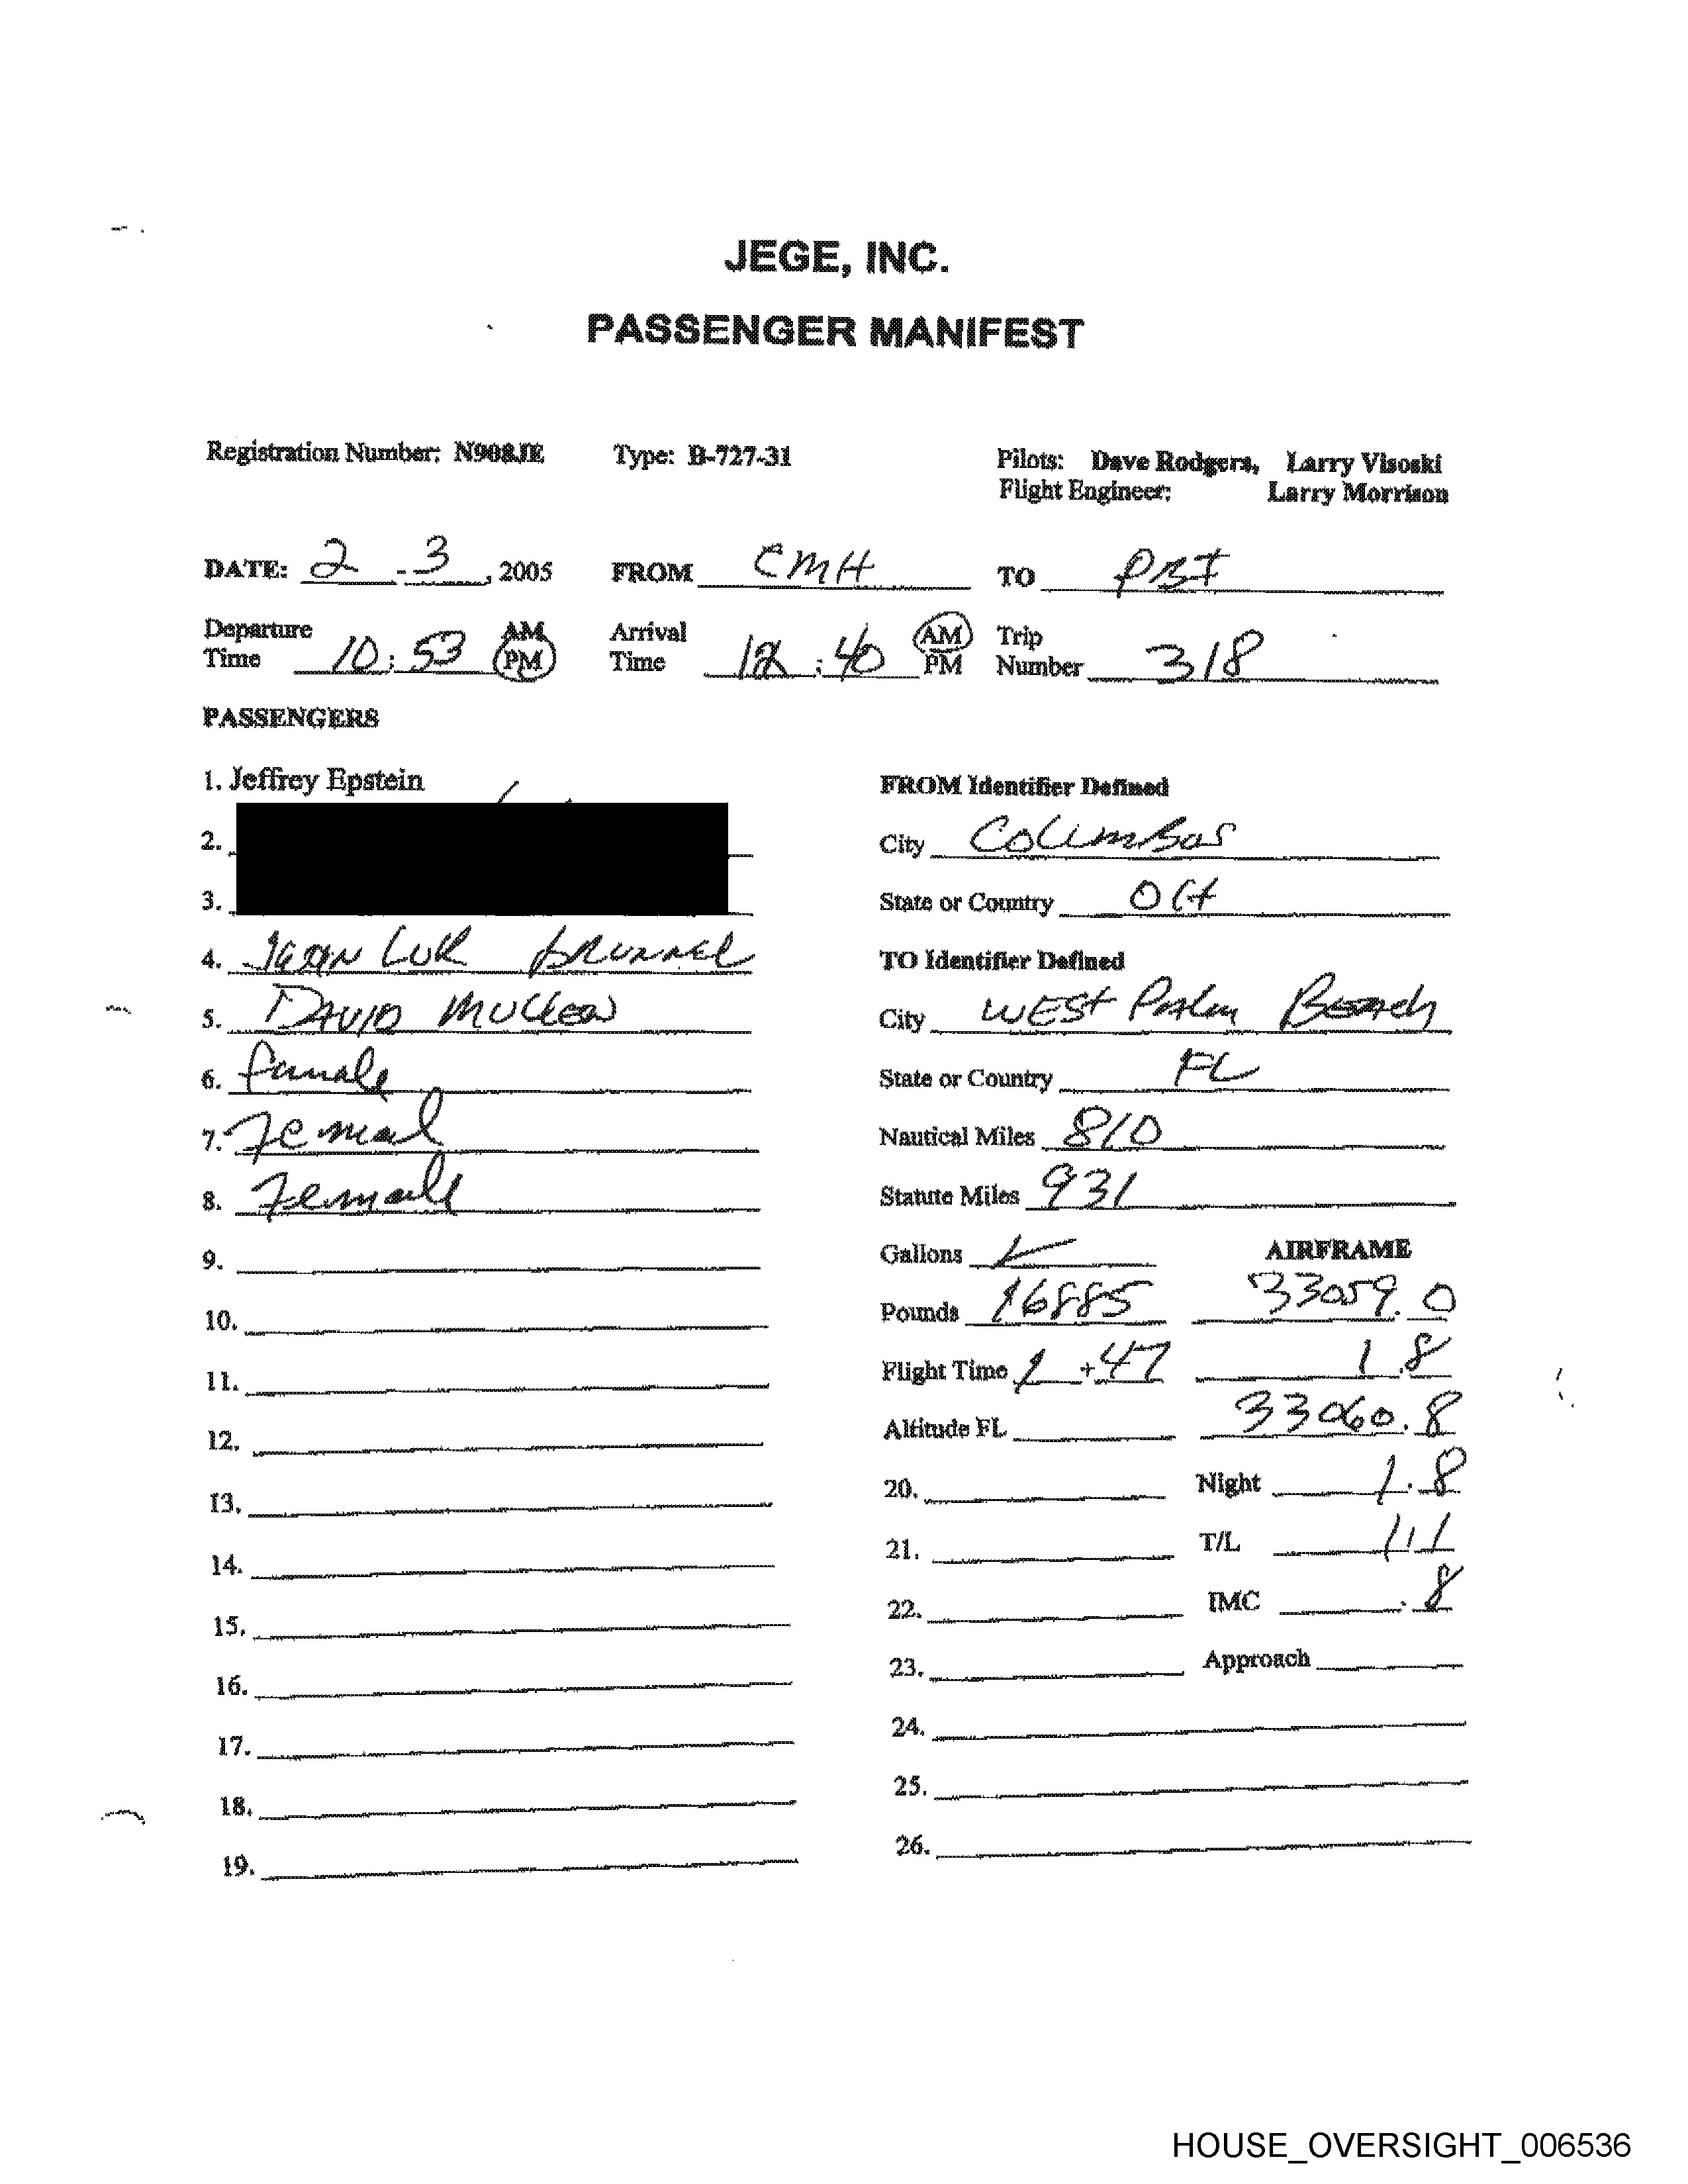 JEGE, INC.
PASSENGER MANIFEST
Registration Number: N908JE Type: B-727-31 Pilots: Dave Rodgers, Larry Visoski
Flight Engineer: Larry Morrison
DATE: 2 - 3, 2005 FROM CMH TO PBI
Departure Time 10:53 AM PM Arrival Time 12:40 AM PM Trip Number 318
PASSENGERS
1. Jeffrey Epstein
2.
3.
4. Jean Luk Brunnel
5. David Mullen
6. female
7. Femal
8. Female
9.
10.
11.
12.
13.
14.
15.
16.
17.
18.
19.
FROM Identifier Defined
City Columbus
State or Country OH
TO Identifier Defined
City WEST Palm Beach
State or Country FL
Nautical Miles 810
Statute Miles 931
Gallons AIRFRAME
Pounds 16885 33059.0
Flight Time 1 + 47 1.8
Altitude FL 33060.8
20. Night 1.8
21. T/L 1/1
22. IMC .8
23. Approach
24.
25.
26.
HOUSE_OVERSIGHT_006536